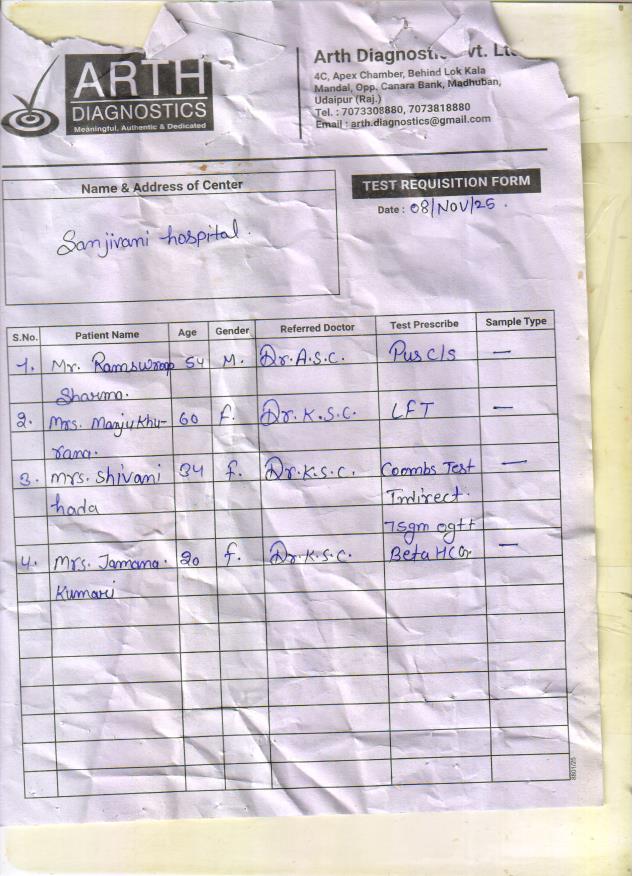 ARTH
DIAGNOSTICS
Meaningful, Authentic & Dedicated
Arth Diagnostics Pvt. Lt
4C, Apex Chamber, Behind Lok Kala
Mandal, Opp. Canara Bank, Madhuban,
Udaipur (Raj.)
Tel. : 7073308880, 7073818880
Email : arth.diagnostics@gmail.com
Name & Address of Center
Sanjivani hospital.
TEST REQUISITION FORM
Date : 08/NOV/25.
S.No. Patient Name Age Gender Referred Doctor Test Prescribe Sample Type
1. Mr. Ramswroop 54 M. Dr. A.S.C. Pus C/s —
Sharma.
2. Mrs. Manju Khu- 60 f. Dr. K.S.C. LFT —
rana.
3. Mrs. Shivani 34 f. Dr. K.S.C. Coombs Test —
hada Indirect.
75gm ogtt
4. Mrs. Jamana. 20 f. Dr. K.S.C. Beta HCG —
Kumari
8801/25